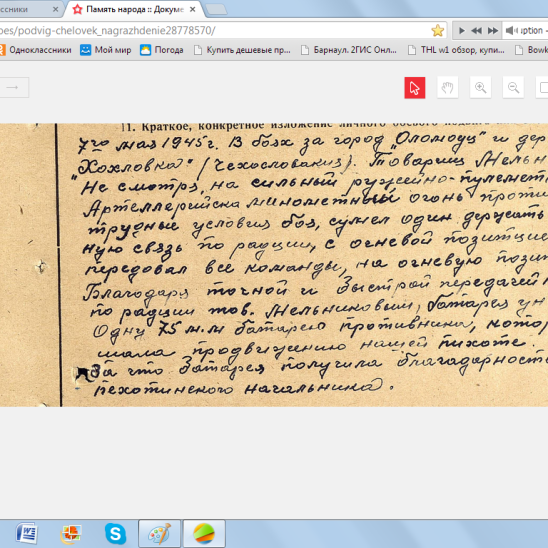 ссники
Память народа :: Докуме
oes/podvig-chelovek_nagrazhdenie28778570/
uption -
Одноклассники Мой мир Погода Купить дешевые пр... Барнаул. 2ГИС Онл... THL w1 обзор, купи... Bowk
11. Краткое, конкретное изложение личного боевого
7го мая 1945г. В боях за город "Оломоуц" и дер
"Хохловка" (Чехословакия). Товарищ Мельн
Не смотря, на сильный ружейно-пулемет
Артеллерийска минометный огонь проти
трудные условия боя, сумел один держать
ную связь по радции, с огневой позицие
передовал все команды, на огневую пози
Благодаря точной и быстрой передачей
по радции тов. Мельниковым, батарея ун
Одну 75 м.м батарею противника, кото
шала продвижению нашей пихоте.
За что батарея получила благодарност
пехотинского начальника.